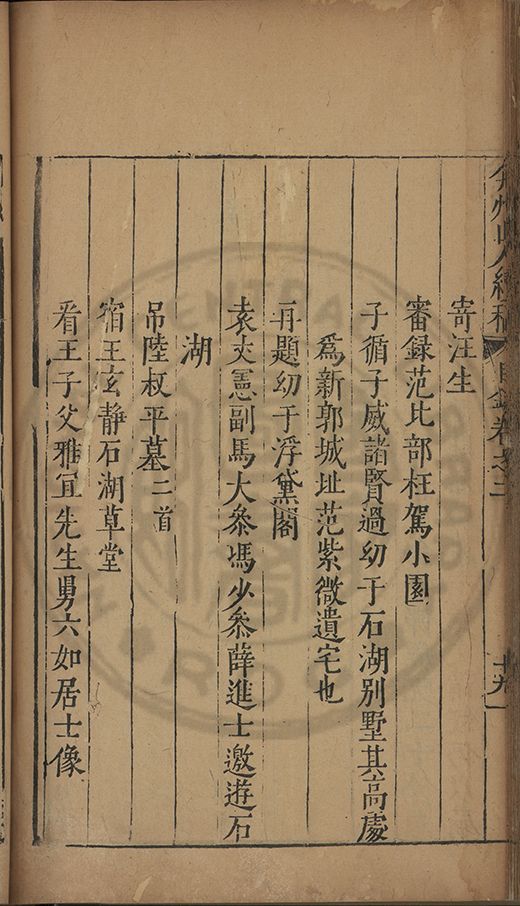 弇州山人續稿 目錄卷之二 十九
寄汪生
審録范比部枉駕小園
子循子威諸賢過幼于石湖别墅其高處
爲新郭城址范紫微遺宅也
再題幼于浮黛閣
袁文憲副馬大叅馮少叅薛進士邀遊石
湖
吊陸叔平墓二首
宿王玄静石湖草堂
看王子父雅宜先生男六如居士像